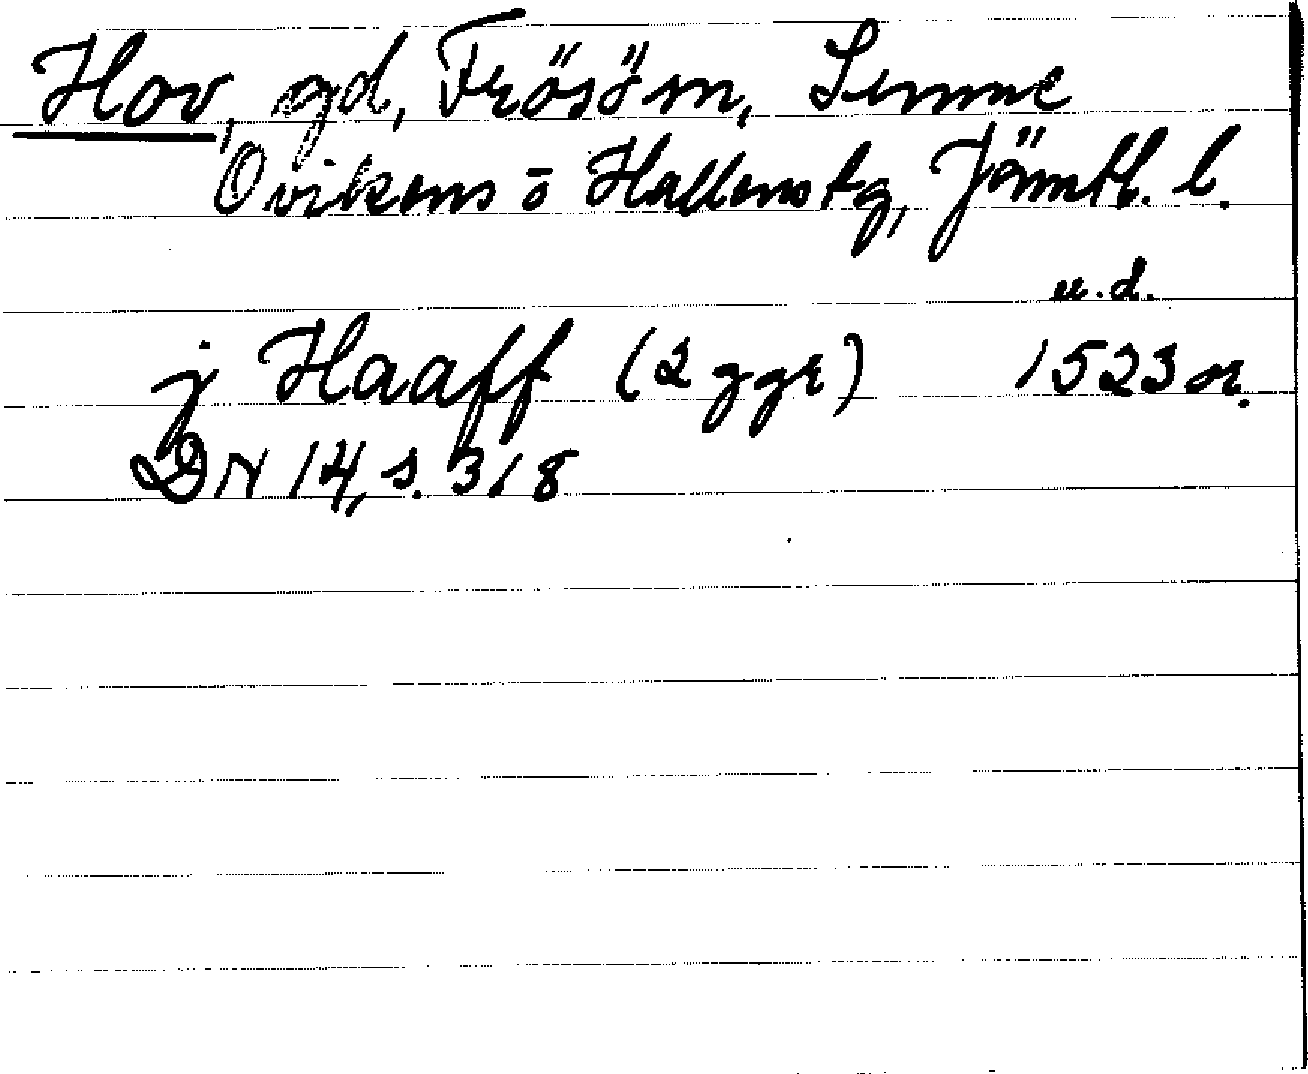 Hov, gd, Frösö sn, Sunne
Ovikens o Hallens tg, Jämtl. l.
u.d.
j Haaff (2 ggr) 1523 or.
DN 14, s. 318